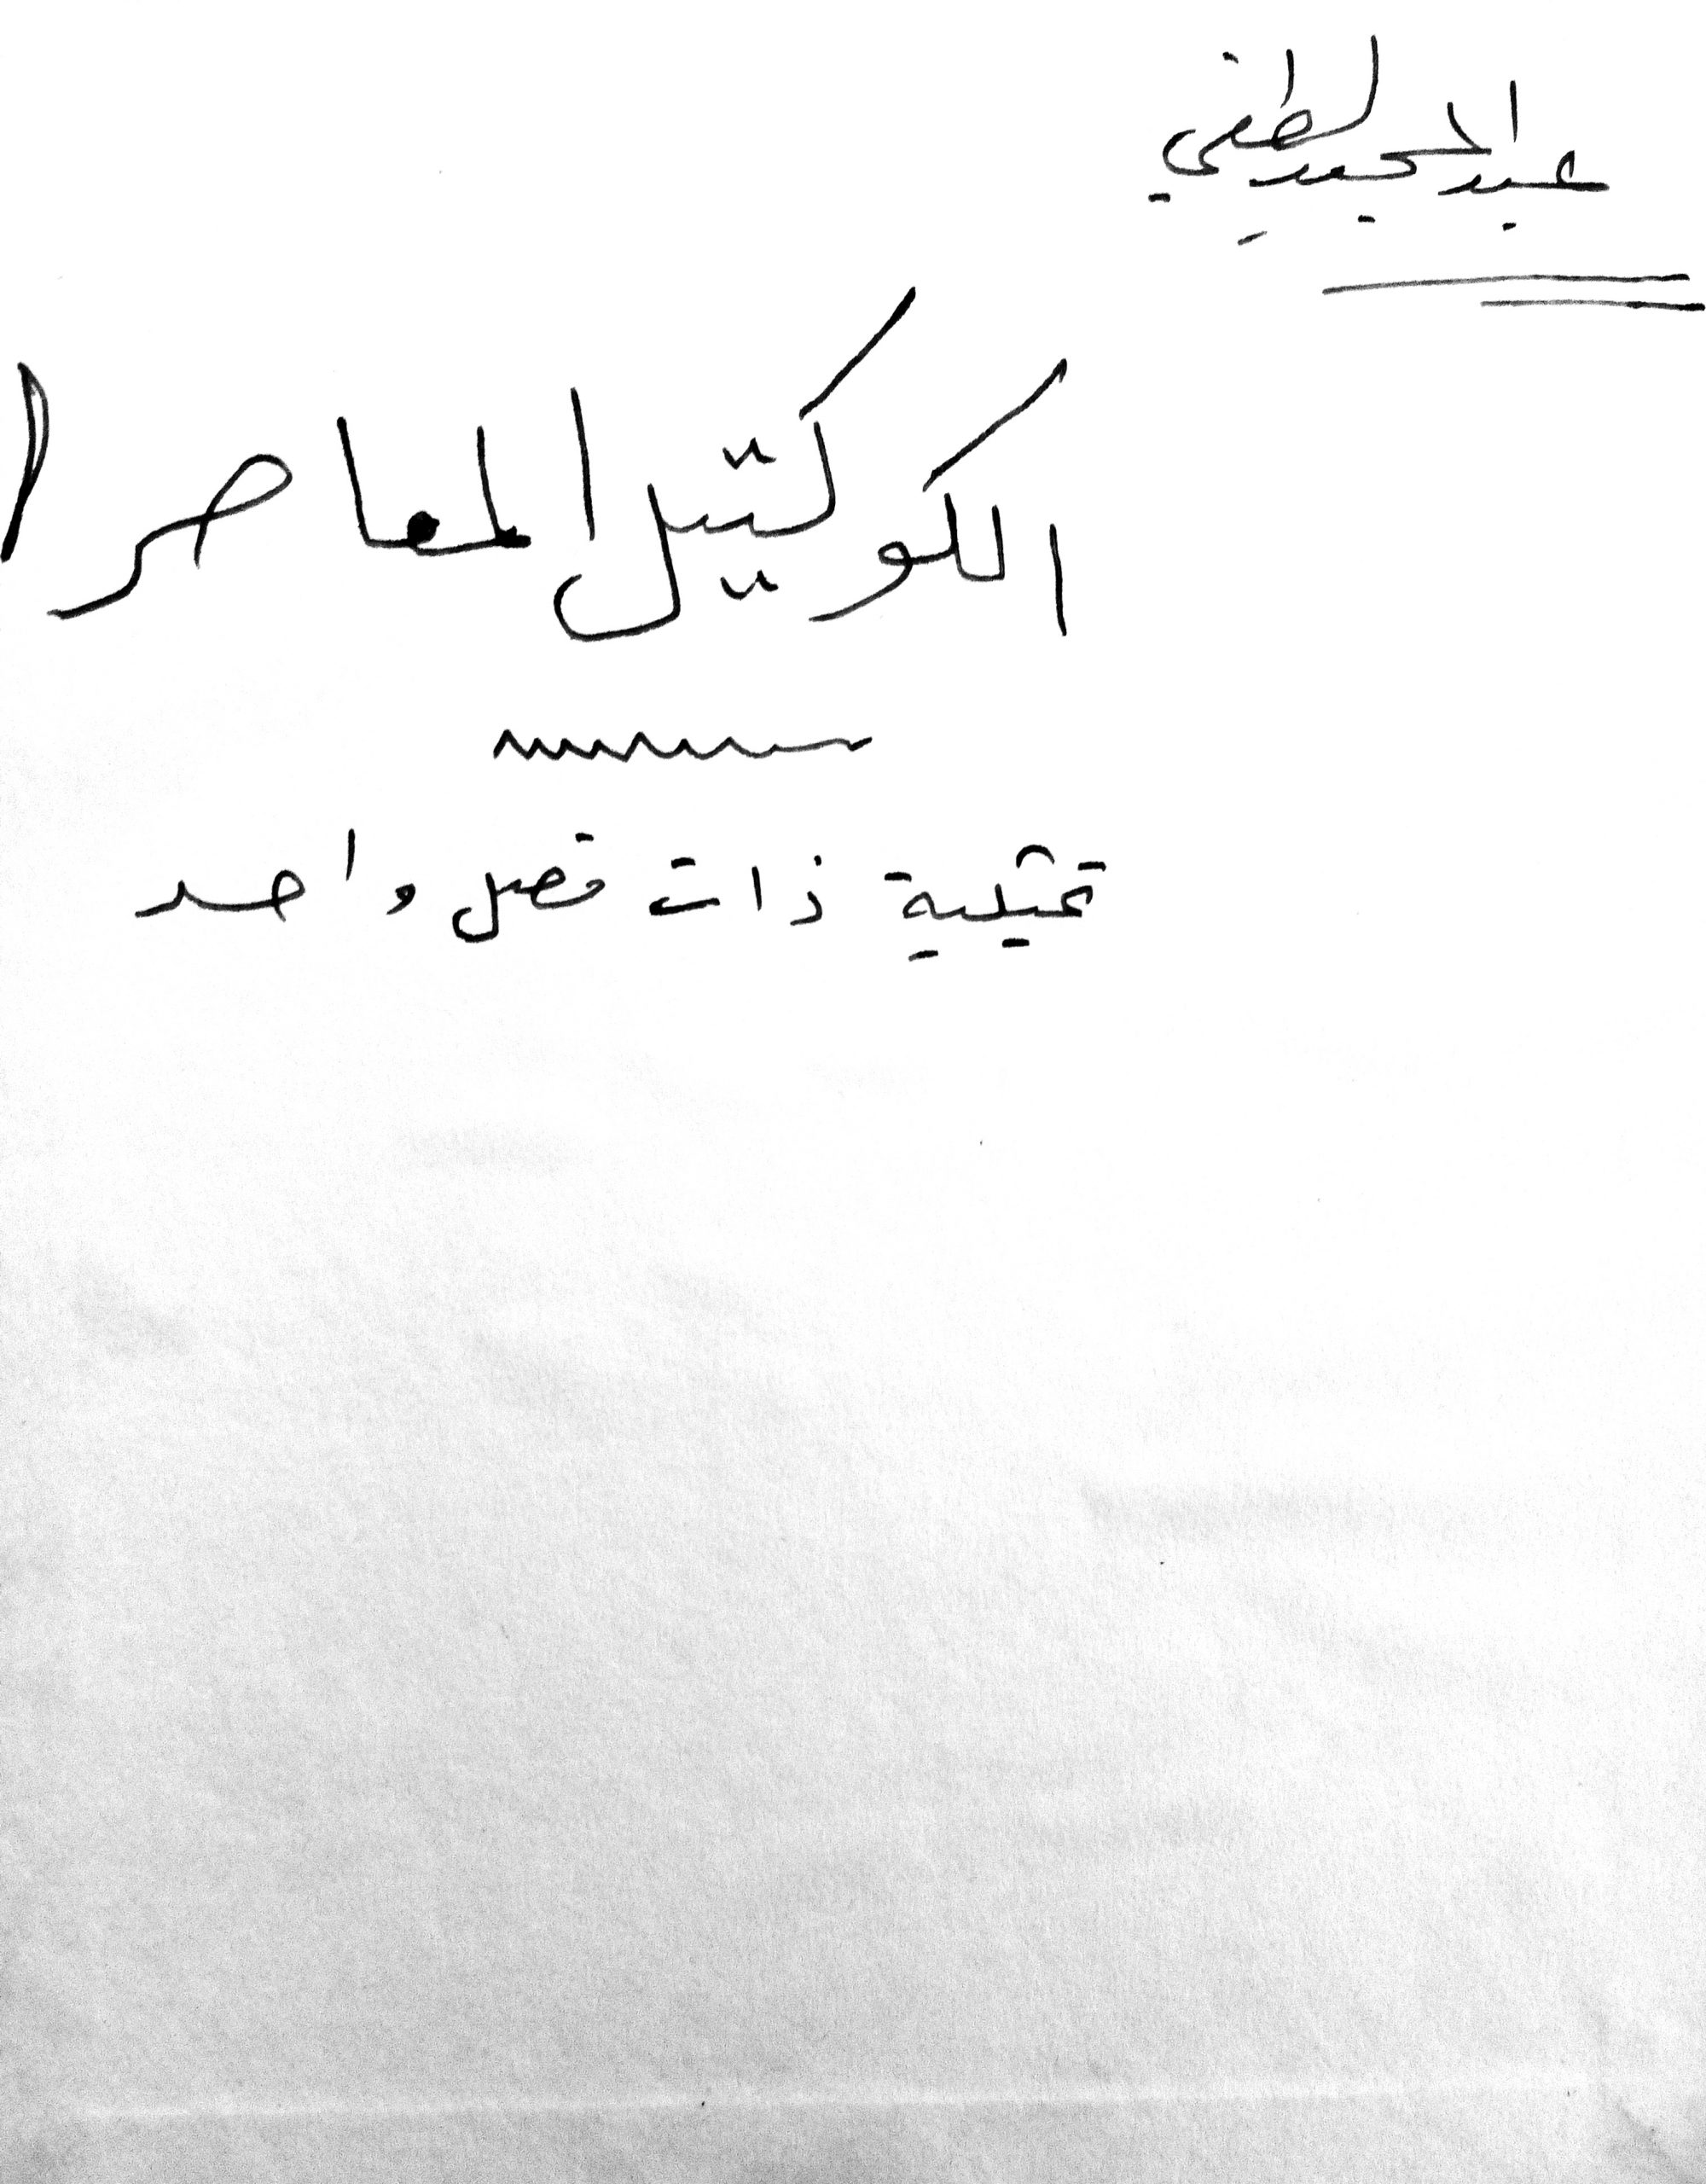 عبد المجيد لطفي
الكوكتيل المعاصر!
تمثيلية ذات فصل واحد